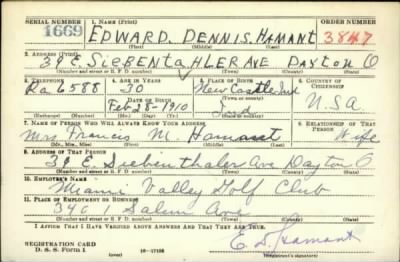 SERIAL NUMBER 1. NAME (Print) ORDER NUMBER
1669 EDWARD. DENNIS. HAMANT 3847
(First) (Middle) (Last)
2. ADDRESS (Print)
39 E. SIEBENTAHLER AVE DAYTON O
(Number and street or R. F. D. number) (Town) (County) (State)
3. TELEPHONE 4. AGE IN YEARS 5. PLACE OF BIRTH 6. COUNTRY OF CITIZENSHIP
Ra 6588 30 New Castle Ind
DATE OF BIRTH (Town or county)
Feb-28-1910 Ind. U.S.A
(Exchange) (Number) (Mo.) (Day) (Yr.) (State or country)
7. NAME OF PERSON WHO WILL ALWAYS KNOW YOUR ADDRESS 8. RELATIONSHIP OF THAT PERSON
Mrs. Francis M. Hamant Wife
(Mr., Mrs., Miss) (First) (Middle) (Last)
9. ADDRESS OF THAT PERSON
39 E. Siebenthaler Ave Dayton O
(Number and street or R. F. D. number) (Town) (County) (State)
10. EMPLOYER'S NAME
Miami Valley Golf Club
11. PLACE OF EMPLOYMENT OR BUSINESS
3401 Salem Ave
(Number and street or R. F. D. number) (Town) (County) (State)
I AFFIRM THAT I HAVE VERIFIED ABOVE ANSWERS AND THAT THEY ARE TRUE.
REGISTRATION CARD
D. S. S. Form 1 16—17105 E. D. Hamant
(Registrant's signature)